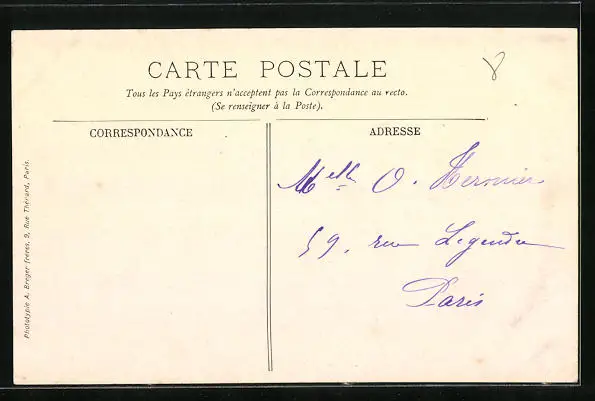 CARTE POSTALE
Tous les Pays étrangers n'acceptent pas la Correspondance au recto.
(Se renseigner à la Poste).
CORRESPONDANCE
ADRESSE
Melle O.
59, rue Legendre
Paris
Phototypie A. Breger frères, 9, Rue Thénard, Paris.